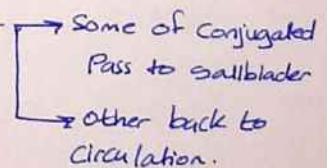 Some of Conjugated
Pass to gallblader
other back to
Circulation.